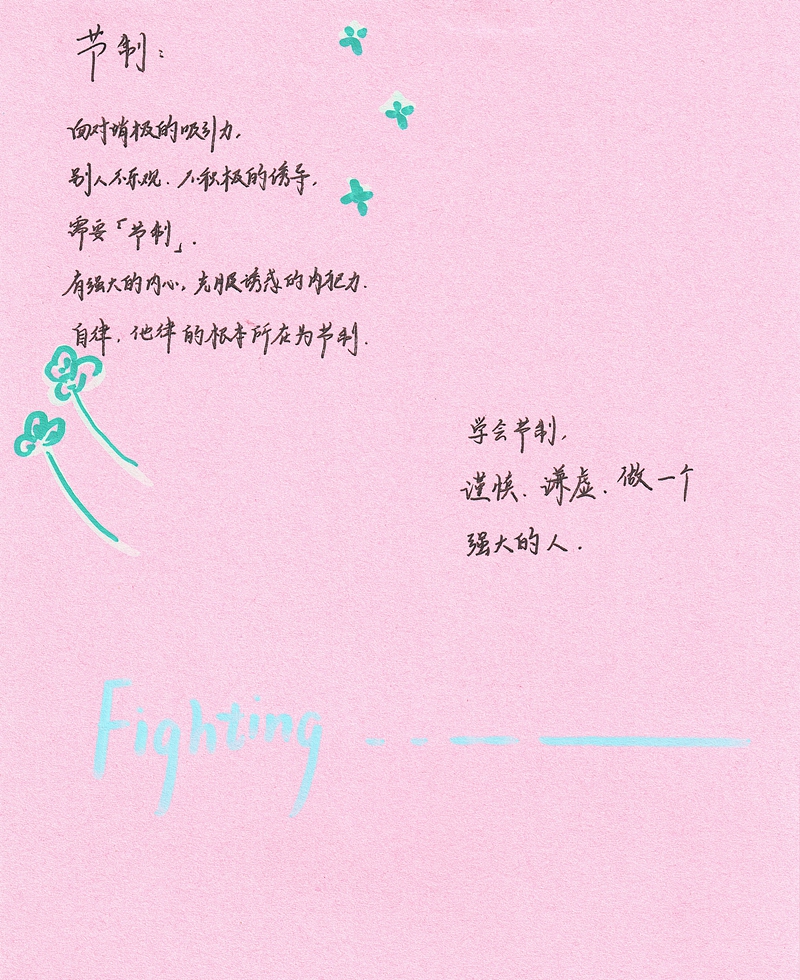 节制：
面对消极的吸引力，
别人不乐观、不积极的诱导，
需要「节制」.
有强大的内心，克服诱惑的内犯力.
自律，他律的根本所在为节制.
学会节制，
谨慎、谦虚、做一个
强大的人.
Fighting